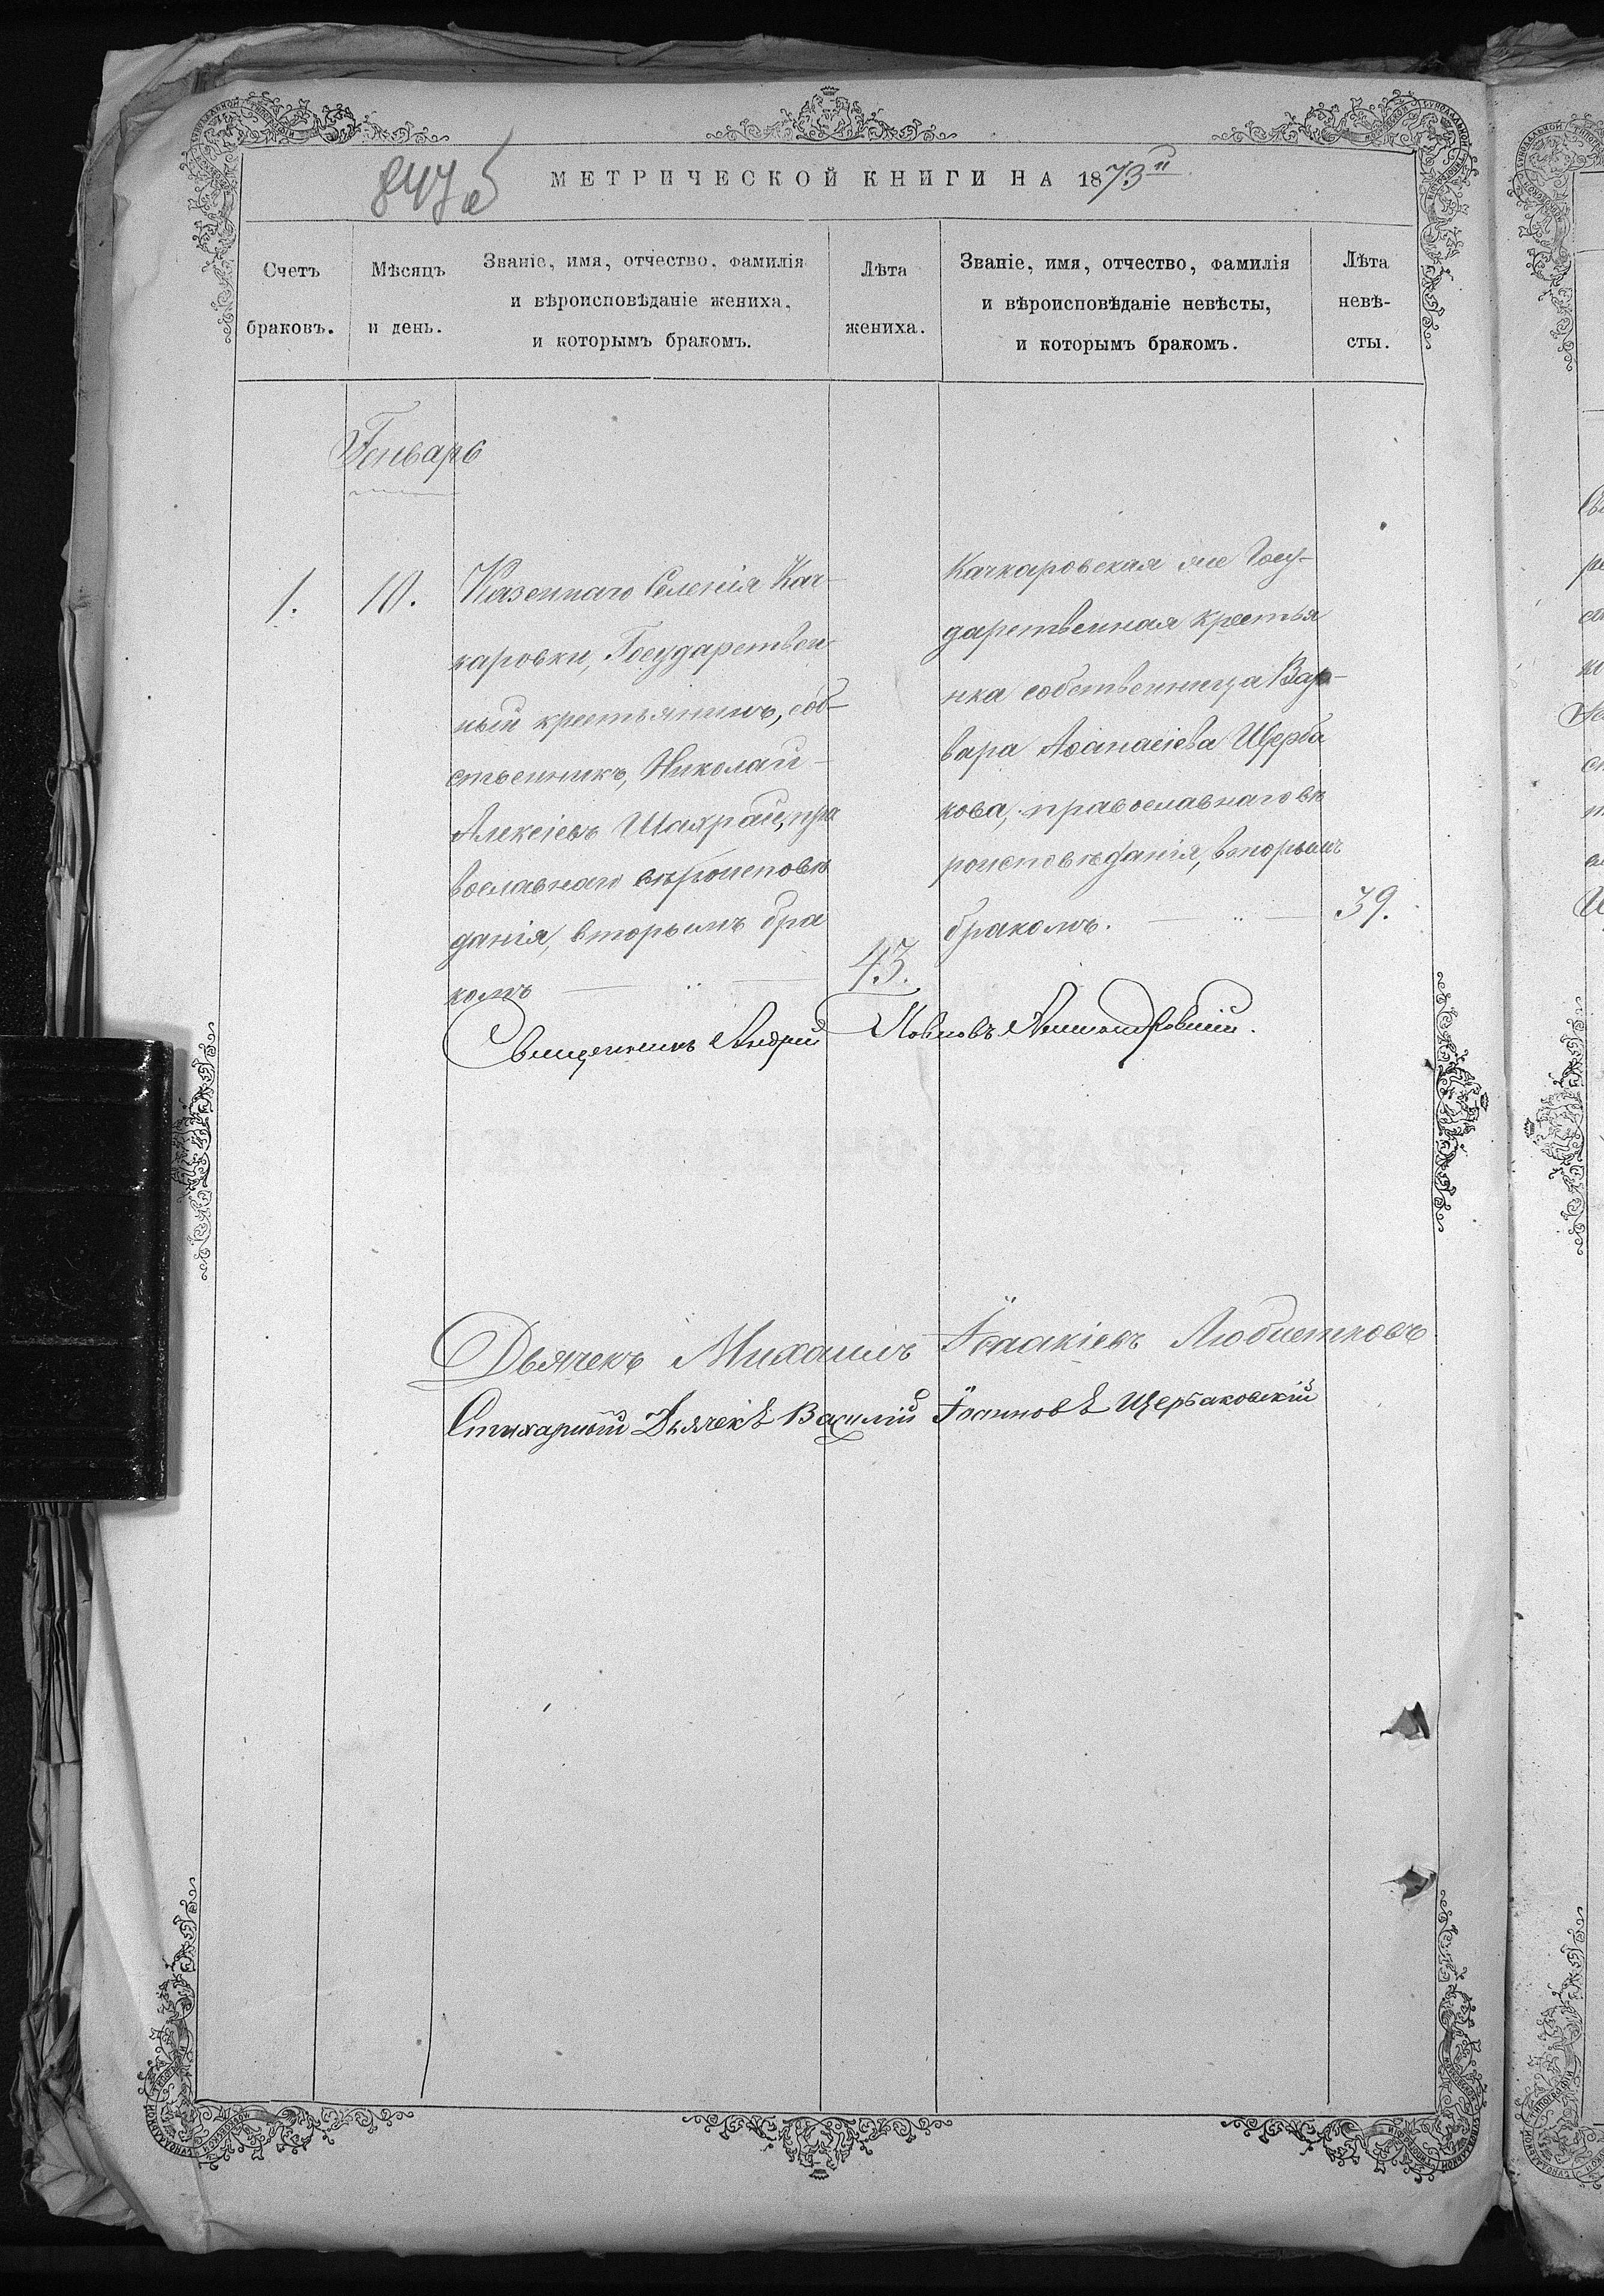 847б
МЕТРИЧЕСКОЙ КНИГИ НА 1873й
Счетъ браковъ.
Мѣсяцъ и день.
Званіе, имя, отчество, фамилія
и вѣроисповѣданіе жениха,
и которымъ бракомъ.
Лѣта жениха.
Званіе, имя, отчество, фамилія
и вѣроисповѣданіе невѣсты,
и которымъ бракомъ.
Лѣта
невѣ-
сты.
Генварь
1.
10.
Казеннаго Селенія Кач-
каровки, Государствен
ный крестьянинъ, соб-
ственникъ, Николай
Алексіевъ Шахрай, пра
вославнаго вѣроисповѣ
данія, вторымъ бра
комъ
43.
Качкаровская же Госу-
дарственная крестья
нка собственница Вар-
вара Аѳанасіева Щерба
кова, православнаго вѣ
роисповѣданія, вторымъ
бракомъ.
39.
Священникъ Андрей
Дьячекъ Михаилъ Ісаакіевъ Любистковъ
Стихарный Дьячекъ Василій Іоанновъ Щербаковскій